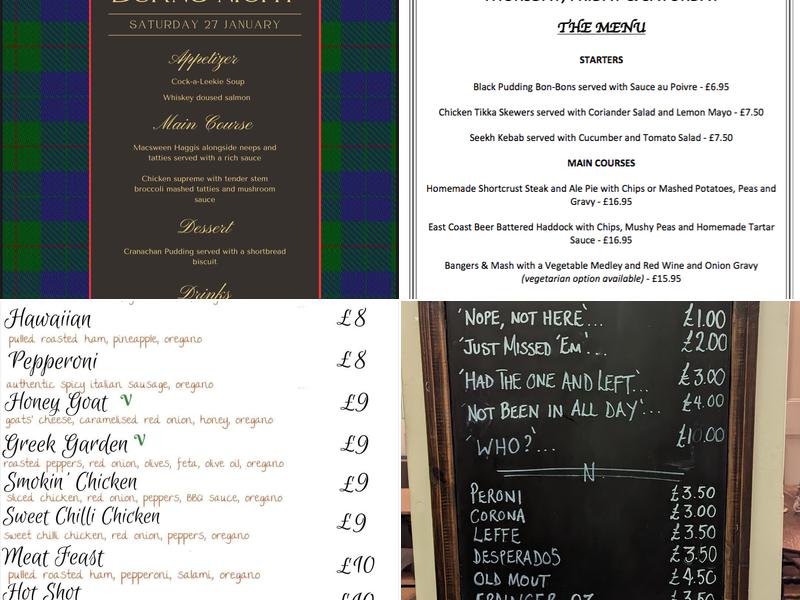 SATURDAY 27 JANUARY
Appetizer
Cock-a-Leekie Soup
Whiskey doused salmon
Main Course
Macsween Haggis alongside neeps and
tatties served with a rich sauce
Chicken supreme with tender stem
broccoli mashed tatties and mushroom
sauce
Dessert
Cranachan Pudding served with a shortbread
biscuit
Drinks
THE MENU
STARTERS
Black Pudding Bon-Bons served with Sauce au Poivre - £6.95
Chicken Tikka Skewers served with Coriander Salad and Lemon Mayo - £7.50
Seekh Kebab served with Cucumber and Tomato Salad - £7.50
MAIN COURSES
Homemade Shortcrust Steak and Ale Pie with Chips or Mashed Potatoes, Peas and
Gravy - £16.95
East Coast Beer Battered Haddock with Chips, Mushy Peas and Homemade Tartar
Sauce - £16.95
Bangers & Mash with a Vegetable Medley and Red Wine and Onion Gravy
(vegetarian option available) - £15.95
Hawaiian £8
pulled roasted ham, pineapple, oregano
Pepperoni £8
authentic spicy italian sausage, oregano
Honey Goat V £9
goats' cheese, caramelised red onion, honey, oregano
Greek Garden V £9
roasted peppers, red onion, olives, feta, olive oil, oregano
Smokin' Chicken £9
sliced chicken, red onion, peppers, BBQ sauce, oregano
Sweet Chilli Chicken £9
sweet chilli chicken, red onion, peppers, oregano
Meat Feast £10
pulled roasted ham, pepperoni, salami, oregano
Hot Shot
'NOPE, NOT HERE'... £1.00
'JUST MISSED 'EM'... £2.00
'HAD THE ONE AND LEFT'... £3.00
'NOT BEEN IN ALL DAY'... £4.00
'WHO?'... £10.00
N
PERONI £3.50
CORONA £3.00
LEFFE £3.50
DESPERADOS £3.50
OLD MOUT £4.50